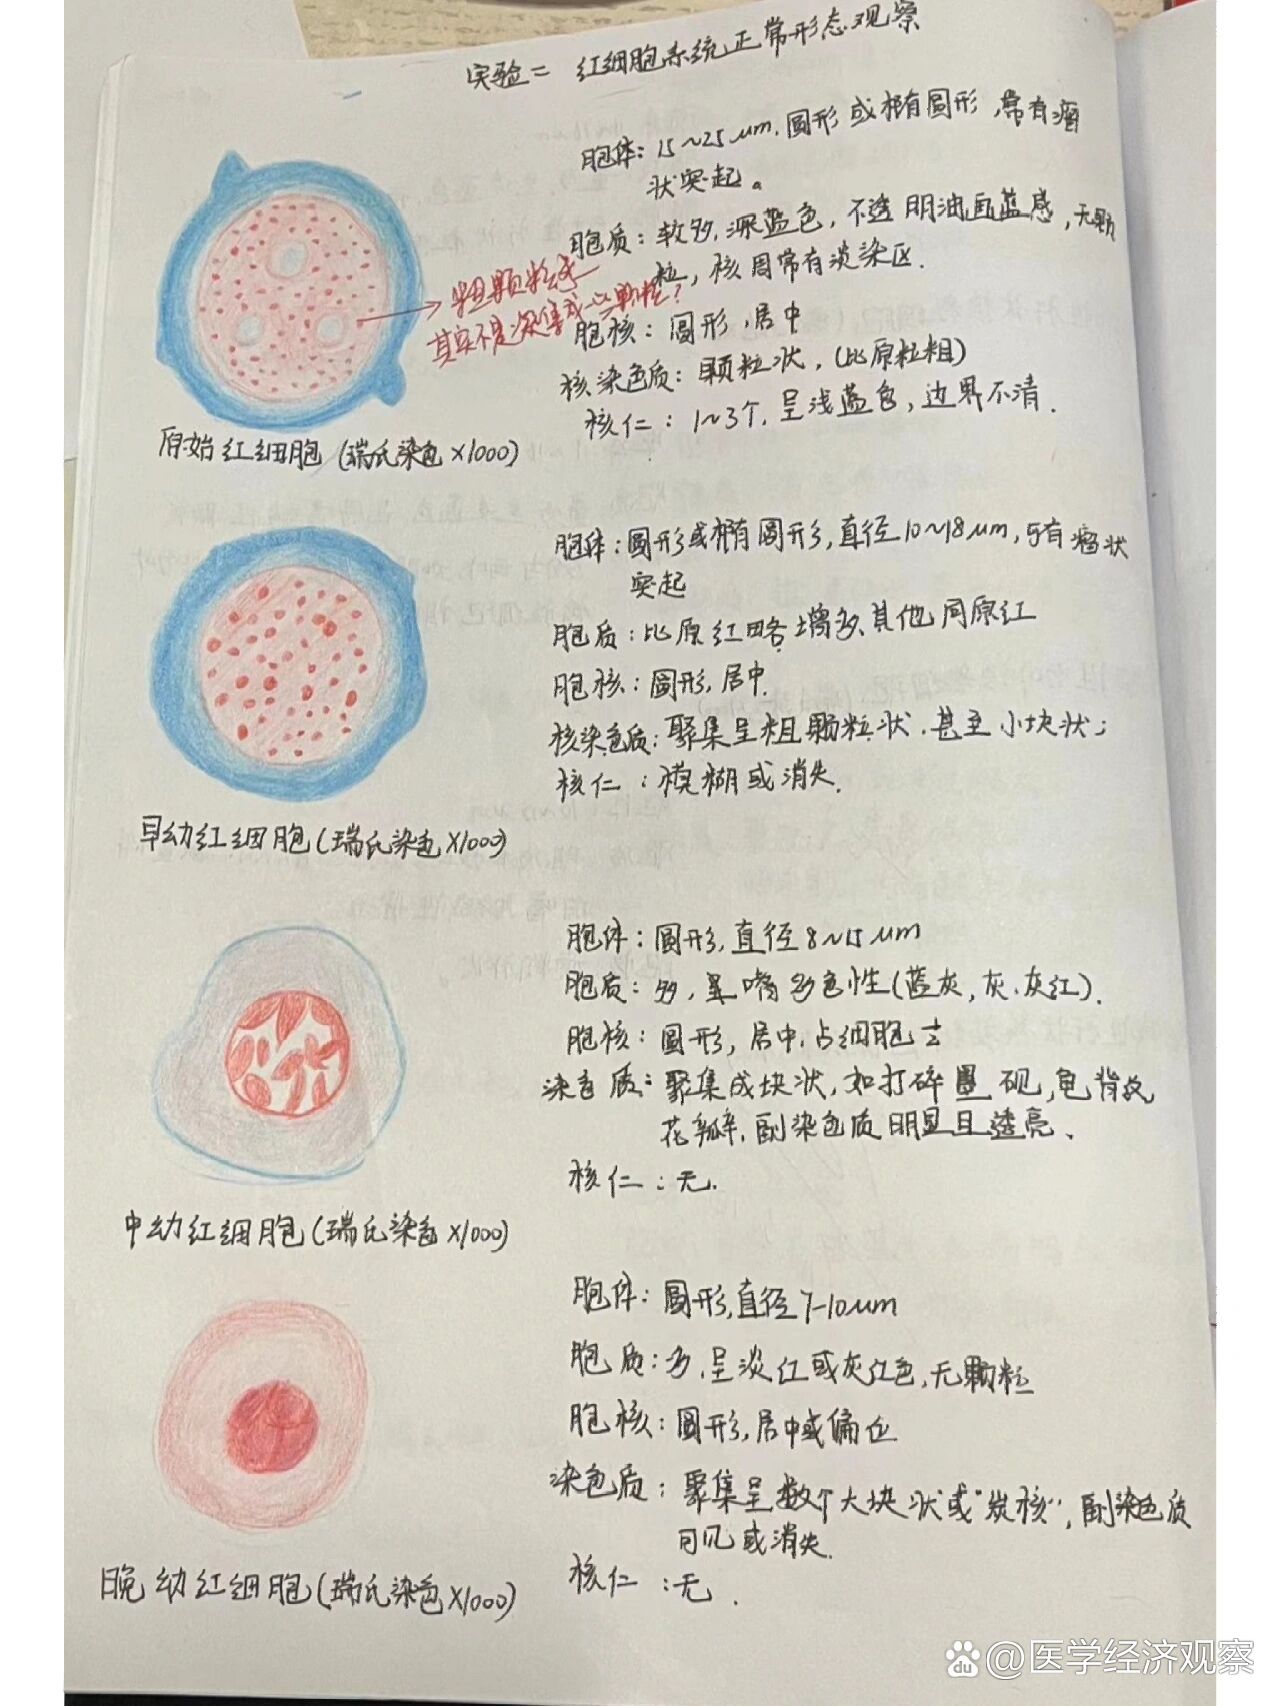 实验二 红细胞系统正常形态观察
胞体：15~25μm，圆形或椭圆形，常有瘤
状突起。
胞质：较多，深蓝色，不透明油画蓝感，无颗
粒，核周常有淡染区．
胞核：圆形，居中
核染色质：颗粒状，(比原粒粗)
核仁：1~3个，呈浅蓝色，边界不清．
→粗颗粒
其实不是凝集成一块颗粒？
原始红细胞(瑞氏染色×1000)
胞体：圆形或椭圆形，直径10~18μm，可有瘤状
突起
胞质：比原红略增多，其他同原红
胞核：圆形，居中．
核染色质：聚集呈粗颗粒状．甚至小块状；
核仁：模糊或消失．
早幼红细胞(瑞氏染色×1000)
胞体：圆形，直径8~15μm
胞质：多，呈嗜多色性(蓝灰，灰．灰红)．
胞核：圆形，居中．占细胞
染色质：聚集成块状，如打碎墨砚，龟背纹
花瓣，副染色质明显且透亮．
核仁：无．
中幼红细胞(瑞氏染色×1000)
胞体：圆形，直径7-10μm
胞质：多，呈淡红或灰红色，无颗粒
胞核：圆形，居中或偏位
染色质：聚集呈数个大块状或"炭核"，副染色质
可见或消失．
核仁：无．
晚幼红细胞(瑞氏染色×1000)
Baidu @医学经济观察